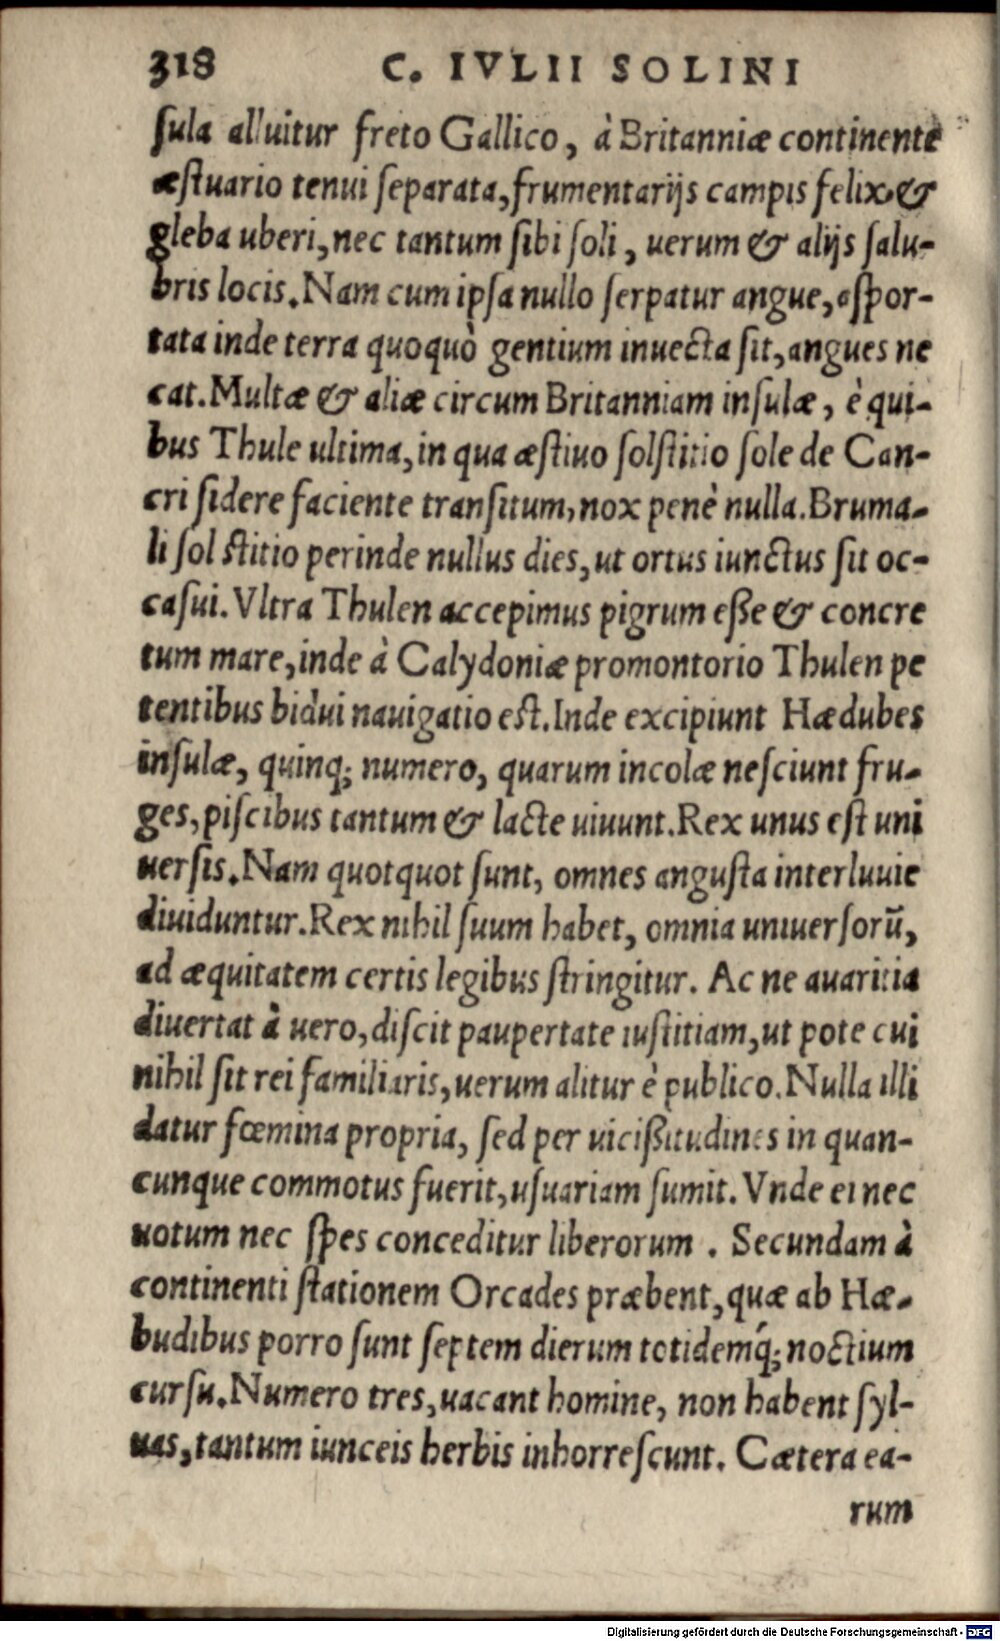 318 C. IVLII SOLINI
ſula alluitur freto Gallico, à Britanniæ continente
æſtuario tenui ſeparata, frumentarijs campis felix, &
gleba uberi, nec tantum ſibi ſoli, uerum & alijs ſalu-
bris locis. Nam cum ipſa nullo ſerpatur angue, aſpor-
tata inde terra quoquò gentium inuecta ſit, angues ne
cat. Multæ & aliæ circum Britanniam inſulæ, è qui-
bus Thule ultima, in qua æſtiuo ſolſtitio ſole de Can-
cri ſidere faciente tranſitum, nox penè nulla. Bruma-
li ſolſtitio perinde nullus dies, ut ortus iunctus ſit oc-
caſui. Vltra Thulen accepimus pigrum eſſe & concre
tum mare, inde à Calydoniæ promontorio Thulen pe
tentibus bidui nauigatio eſt. Inde excipiunt Hædubes
inſulæ, quinq; numero, quarum incolæ neſciunt fru-
ges, piſcibus tantum & lacte uiuunt. Rex unus eſt uni
uerſis. Nam quotquot ſunt, omnes anguſta interluuie
diuiduntur. Rex nihil ſuum habet, omnia uniuerſorũ,
ad æquitatem certis legibus ſtringitur. Ac ne auaritia
diuertat à uero, diſcit paupertate iuſtitiam, ut pote cui
nihil ſit rei familiaris, uerum alitur è publico. Nulla illi
datur fœmina propria, ſed per uiciſſitudines in quan-
cunque commotus fuerit, uſuariam ſumit. Vnde ei nec
uotum nec ſpes conceditur liberorum. Secundam à
continenti ſtationem Orcades præbent, quæ ab Hæ-
budibus porro ſunt ſeptem dierum totidemq́; noctium
curſu. Numero tres, uacant homine, non habent ſyl-
uas, tantum iunceis herbis inhorreſcunt. Cætera ea-
rum
Digitalisierung gefördert durch die Deutsche Forschungsgemeinschaft - DFG